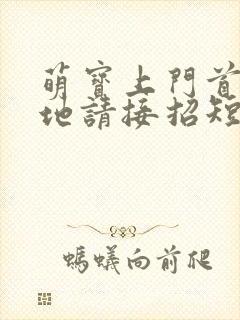 萌寶上門首
地請接招短
螞蟻向前爬